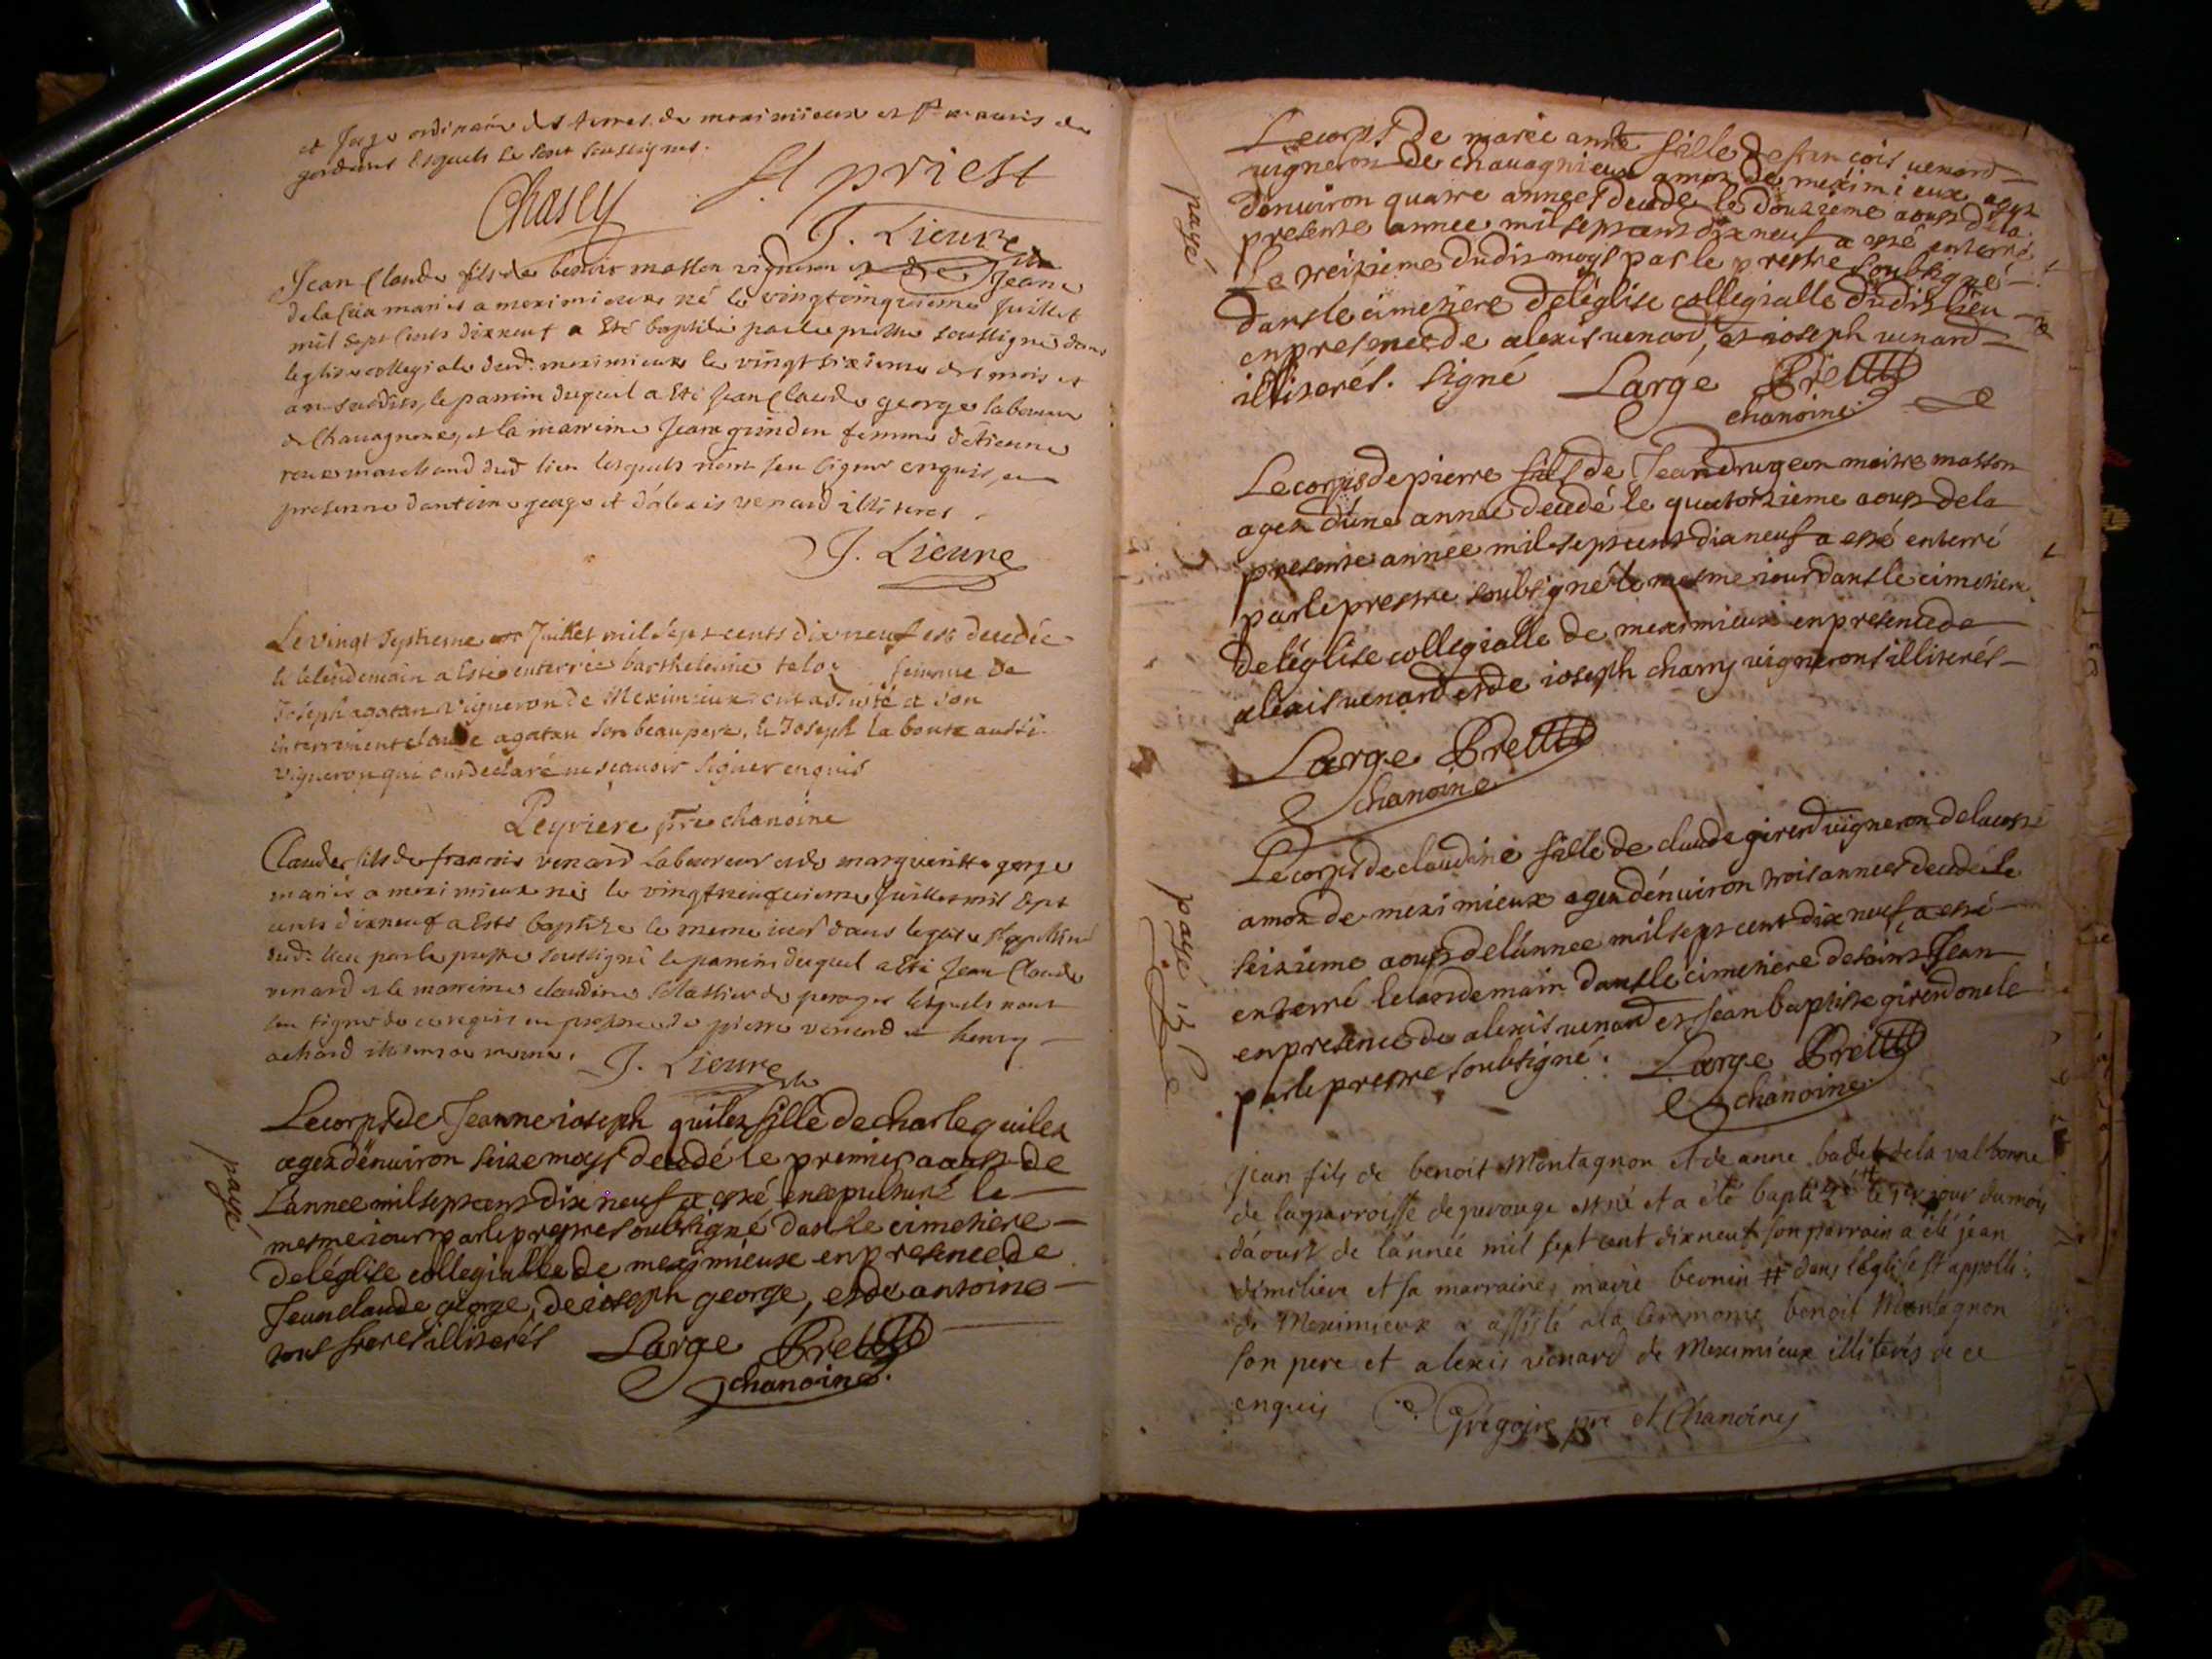 et Juge ordinaire des terres de meximieux et st mauris de
gourdans lesquels se sont soussignes.
Chasey
St priest
J. Lieure
Jean Claude fils de benoit masson vigneron et de Jeane
dela mariés a meximieux né le vingtcinquieme Juillet
mil sept cents dixneuf a Esté baptisé par le prestre soussigné dans
leglise collegiale dud. meximieux le vingt sixieme des mois et
an susdits, le parrin duquel a Eté Jean Claude george laboureur
de Chavagneux, et la marrine Jeane femme d'Etienne
roux marchand dud lieu lesquels n'ont seu signer enquis, en
presence dantoine george et d'alexis venard illiteres
J. Lieure
Le vingt septieme Juillet mil sept cents dix neuf est decedée
& le lendemain a Esté enterrée barthelemie femme de
Joseph agatan vigneron de Meximieux ont assisté a son
enterrement claude agatan son beaupere, & Joseph la boure aussi
vigneron qui ont declaré ne scavoir signer enquis
Peyriere pre chanoine
Claude fils de francois venard Laboureur et de margueritte george
mariés a meximieux né le Juillet mil sept
cents dixneuf a Esté baptizé le meme iour dans leglise st
dud. lieu par le prestre soussigné le parrin duquel a Eté Jean Claude
venard et la marrine claudine de perouges lesquels n'ont
seu signer de ce requis en presence de pierre venard et henry
achard
J. Lieure
Le corps de Jeanne ioseph quilex fille de charle quilex
agex d'enuiron seize moys decedé le premier aoust de
L'annee mil sept cens dix neuf a esté ensepulturé le
mesme iour par le prestre soubsigné dans le cimetiere
de l'église collegialle de meximieux en presence de
Jean claude george, de ioseph george, et de antoine
tous freres illiterés
Large Bre
chanoine.
payé
Le corps de marie anne fille de francois uenard
uigneron de chauagnieux amoz de meximieux agex
d'enuiron quatre annees decedé le douzieme aoust de la
presente annee mil sept cens dix neuf a esté enterré
Le treizieme dudit moys par le prestre soubsigné
dans le cimetiere de l'église collegialle dudit lieu
en presence de alexis uenard, et ioseph uenard
illiterés. signé Large Bre
chanoine
payé
Le corps de pierre fils de Jean drugeon maitre masson
agex d'une annee decedé le quatorzieme aoust de la
presente annee mil sept cens dix neuf a esté enterré
par le prestre soubsigné le mesme iour dans le cimetiere
de l'église collegialle de meximieux en presence de
alexis uenard et de ioseph charry uignerons illiterés
Large Bre
chanoine
Le corps de claudine fille de claude girerd uigneron de
amoz de meximieux agex d'enuiron trois annees decedé le
seizieme aoust de l'annee mil sept cent dix neuf a esté
enterré le landemain dans le cimetiere de saint Jean
en presence de alexis uenard et Jean baptiste girerd oncle
par le prestre soubsigné. Large Bre
chanoine
payé
jean fils de benoit Montagnon et de anne badet de la valbonne
de la parroisse de perouge est né et a été baptizé # le 1er jour du mois
d'aoust de l'année mil sept cent dixneuf son parrain a été jean
et sa marraine marie bernin # dans l'Eglise st appolli:
de Meximieux a assisté a la ceremonie benoit Montagnon
son pere et alexis venard de Meximieux illiterés de ce
enquis
Grégoire pre et Chanoine